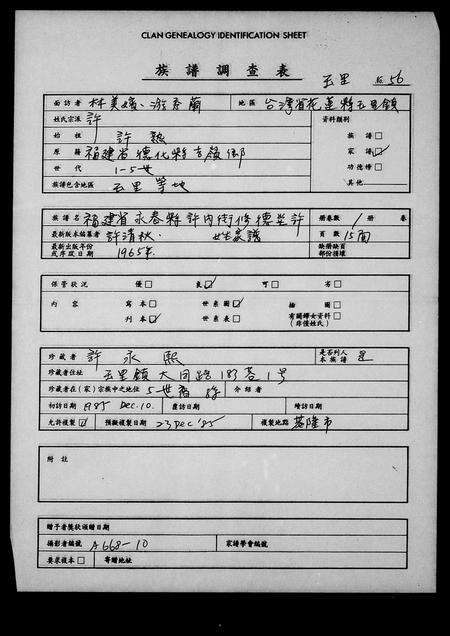 CLAN GENEALOGY IDENTIFICATION SHEET
族譜調查表
玉里 56
面訪者 林美嬪、游 蘭 地區 台灣省花蓮縣玉里鎮
姓氏宗派 許 資料類別
始祖 許 族譜□
原籍 福建省德化縣 鄉 家譜☑
世代 1-5世 功德榜□
族譜包含地區 玉里等地 其他
族譜名 福建省永春縣許內街修德堂許 冊卷數 / 冊 卷
姓家譜
最新版本編纂者 許清秋 頁數 15面
最新出版年份或序跋日期 1965年 缺冊缺頁部份損壞
保管狀況 優□ 良☑ 可□ 劣□
內容 寫本□ 世系圖☑ 插圖□
刊本☑ 世系表□ 有關婦女資料□(非僅姓氏)
珍藏者 許永熙 是否列入本族譜 是
珍藏者住址 玉里鎮大同路183巷1號
珍藏者在(家)宗族中之地位 5世裔孫 介紹者
初訪日期 1985 Dec.10. 覆訪日期 續訪日期
允許複製☑ 預擬複製日期 23 Dec '85 複製地點 基隆市
附註
贈予者獎狀頒贈日期
攝影者編號 A668-10 家譜學會編號
要求複本□ 寄贈地址